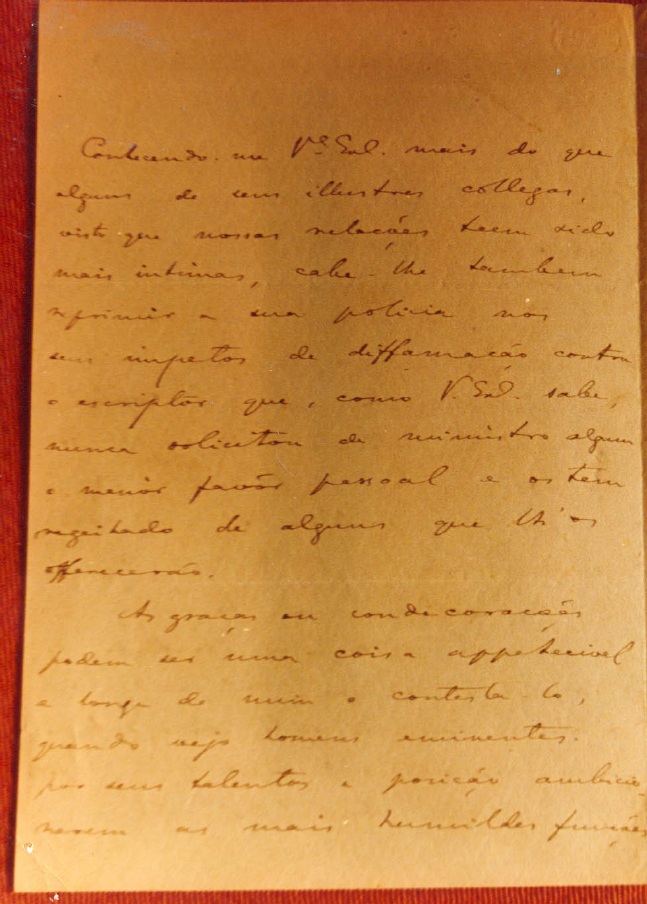 Conhecendo-me Vª Exl. mais do que
alguns de seus illustres collegas,
visto que nossas relações teem sido
mais intimas, cabe-lhe tambem
reprimir a sua policia nos
seus impetos de diffamação contra
o escriptor que, como V. Exl. sabe,
nunca solicitou de ministro algum
o menor favôr pessoal e os tem
regeitado de alguns que lh'os
offerecerão.
As graças ou condecorações
podem ser uma coisa appetecivel
e longe de mim o contesta-lo,
quando vejo homens eminentes
por seus talentos e posição ambicio-
narem as mais humildes funções